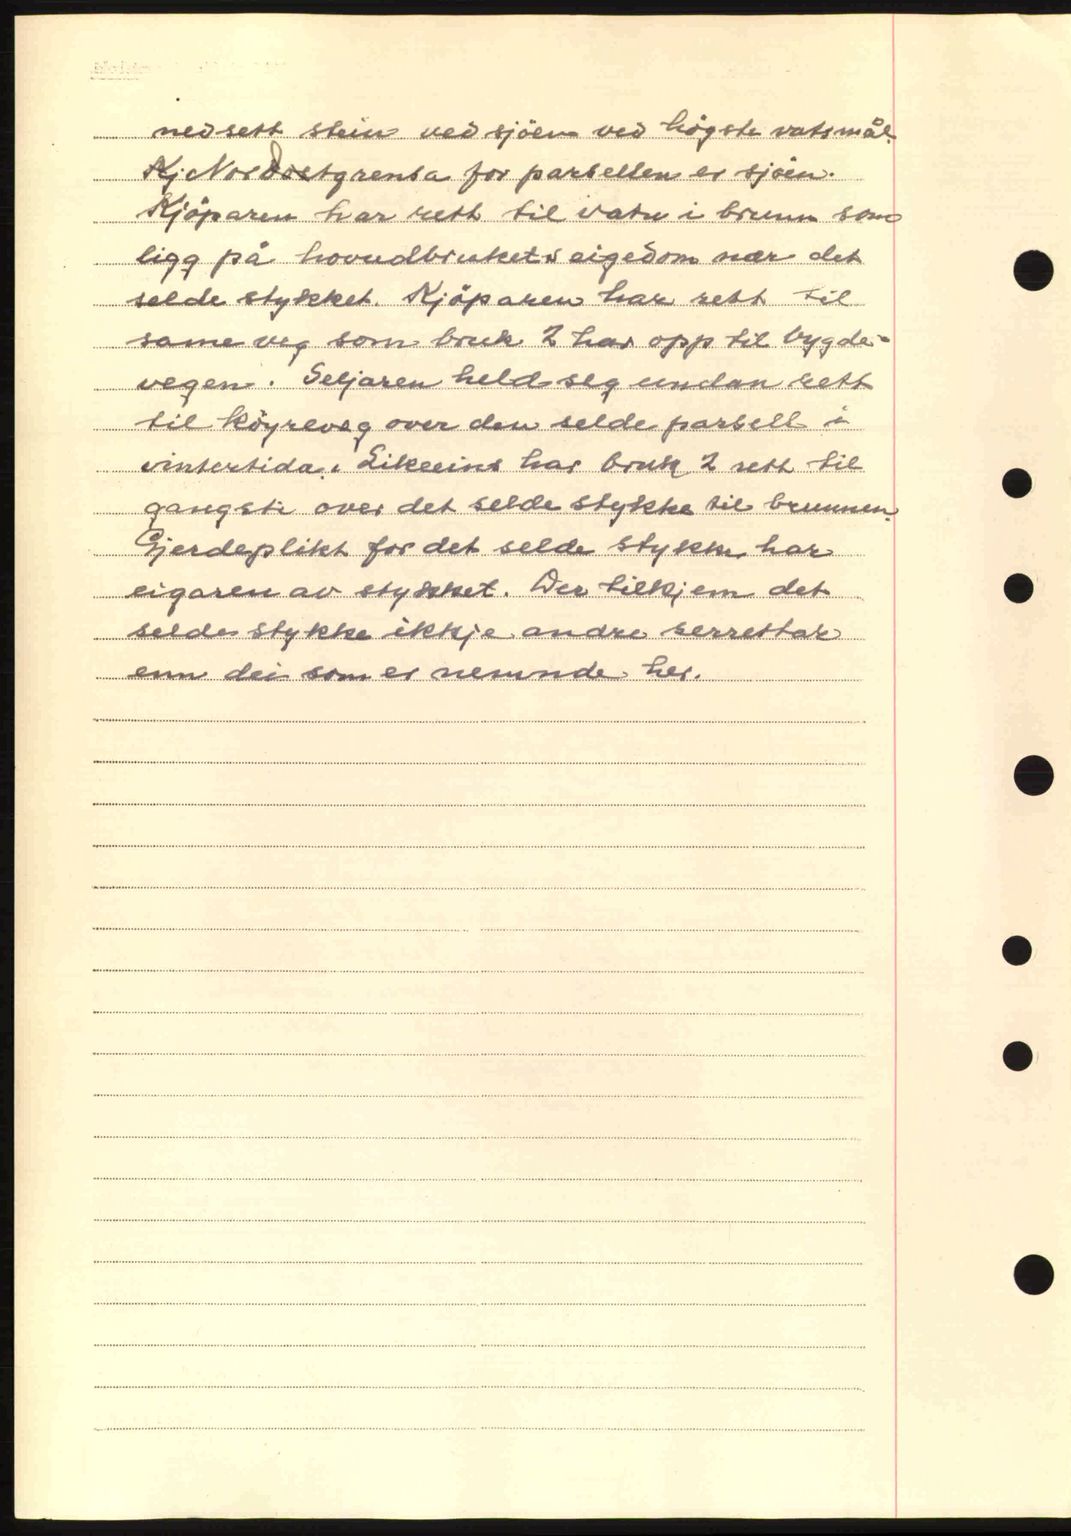 nedsett stein ved sjöen ved högste vatsmål.
Kj. Nordostgrensa for parsellen er sjöen.
Kjöparen har rett til vatn i brunn som
ligg på hovudbrukets eigedom nær det
selde stykket. Kjöparen har rett til
same veg som bruk 2 har opp til bygde-
vegen. Seljaren held seg undan rett
til köyreveg over den selde parsell i
vintertida. Likeeins har bruk 2 rett til
gangsti over det selde stykke til brunnen.
Gjerdeplikt for det selde stykke har
eigaren av stykket. Der tilkjem det
selde stykke ikkje andre serrettar
enn dei som er nemnde her.